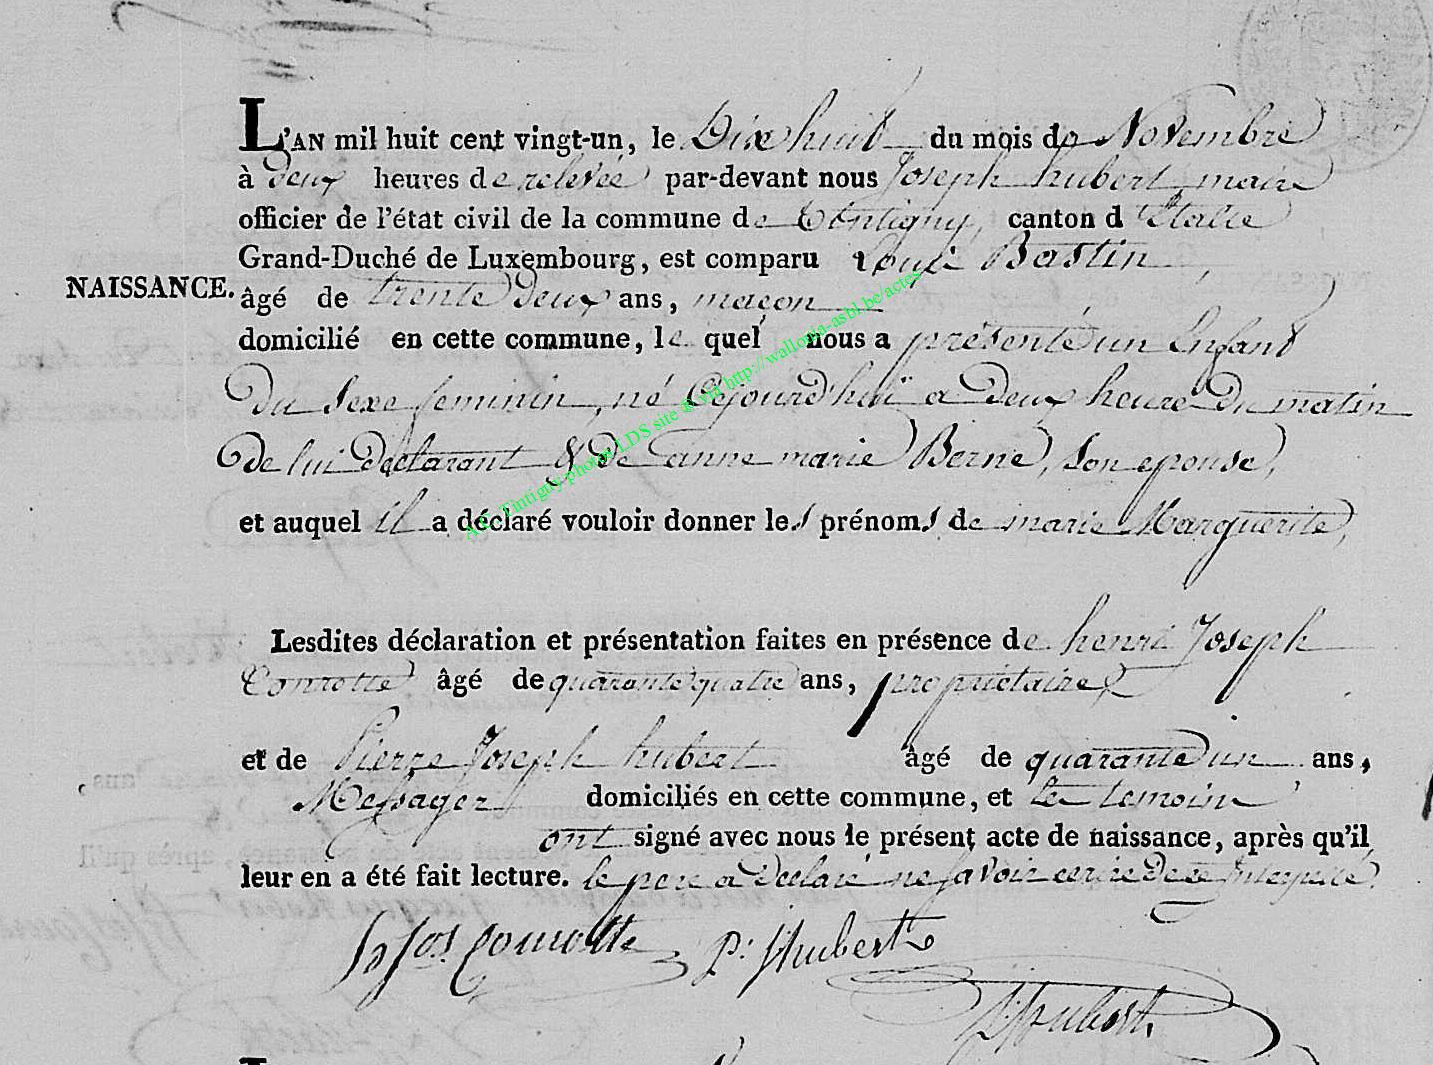 L'AN mil huit cent vingt-un, le Dix huit du mois de Novembre
à deux heures de relevée par-devant nous Joseph hubert, maire
officier de l'état civil de la commune de tintigny, canton d'Etalle
Grand-Duché de Luxembourg, est comparu Louis Bastin,
NAISSANCE. âgé de trente deux ans, maçon
domicilié en cette commune, le quel nous a présenté un Enfant
Du Sexe feminin, né Cejourd'hui a Deux heure du matin
De lui declarant & de anne marie Berne, son epouse,
et auquel il a déclaré vouloir donner les prénoms de marie Marguerite,
Lesdites déclaration et présentation faites en présence de henri Joseph
Conrotte âgé de quarante quatre ans, proprietaire,
et de Pierre Joseph hubert âgé de quarante un ans,
Messager domiciliés en cette commune, et les temoins
ont signé avec nous le présent acte de naissance, après qu'il
leur en a été fait lecture. le pere a declaré ne savoir ecrire de ce interpellé.
h Jos Conrotte P: J hubert
J hubert
A.C. Tintigny photos LDS site & via http://wallonia-asbl.be/actes